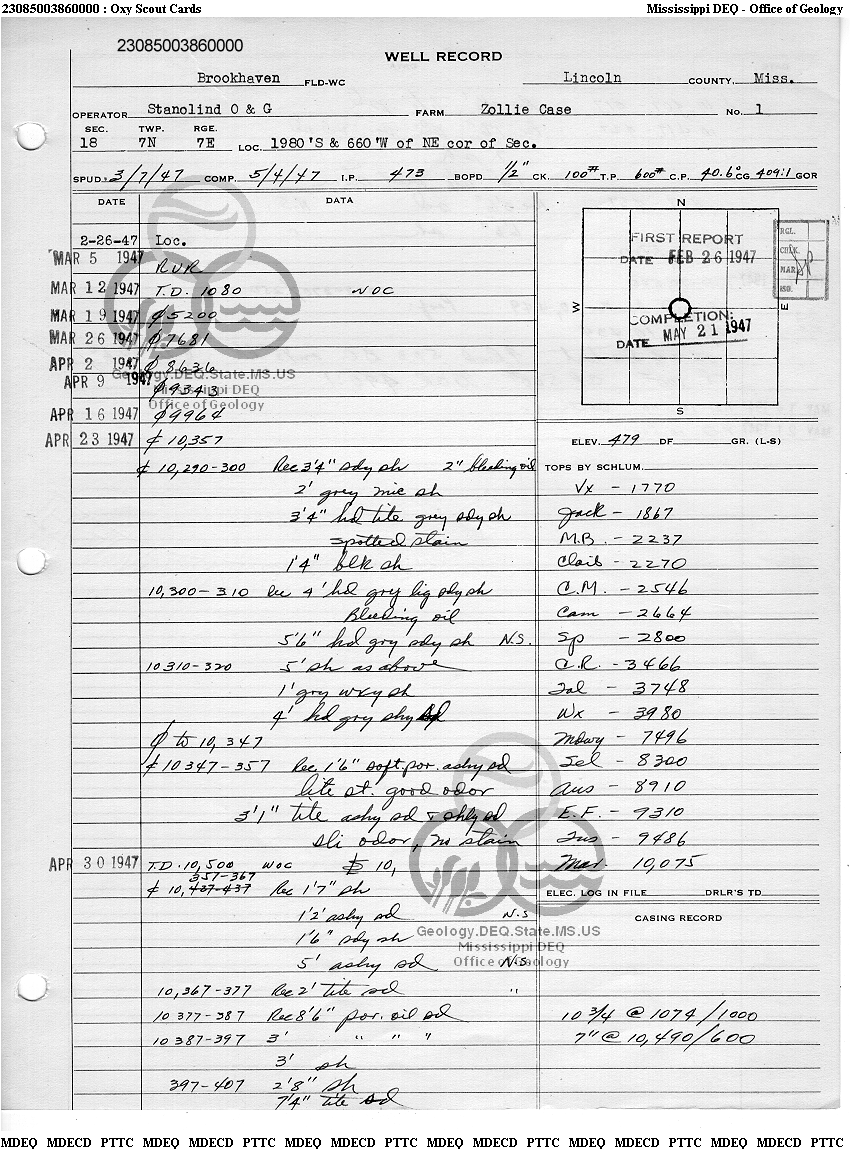 23085003860000 : Oxy Scout Cards
Mississippi DEQ - Office of Geology
23085003860000
WELL RECORD
Brookhaven FLD-WC Lincoln COUNTY, Miss.
OPERATOR Stanolind O & G FARM Zollie Case No. 1
SEC. TWP. RGE.
18 7N 7E LOC. 1980'S & 660'W of NE cor of Sec.
SPUD. 3/7/47 COMP. 5/4/47 I.P. 473 BOPD 1/2" CK. 100# T.P. 600# C.P. 40.6° CG 409:1 GOR
DATE DATA
2-26-47 Loc.
MAR 5 1947 RUR
MAR 12 1947 T.D. 1080 WOC
MAR 19 1947 ₵ 5200
MAR 26 1947 ₵ 7681
APR 2 1947 ₵ 8636
APR 9 1947 ₵ 9343
APR 16 1947 ₵ 9964
APR 23 1947 ₵ 10,357
₵ 10,290-300 Rec 3'4" sdy sh 2" bleeding oil
2' grey mic sh
3'4" hd tite grey sdy sh
spotted stain
1'4" blk sh
10,300-310 Rec 4' hd gry lig sdy sh
Bleeding oil
5'6" hd gry sdy sh N.S.
10310-320 5' sh as above
1' gry wxy sh
4' hd gry shy sd
₵ to 10,347
₵ 10347-357 Rec 1'6" soft por. ashy sd
lite st. good odor
3'1" tite ashy sd & shly sd
sli odor, no stain
APR 30 1947 T.D. 10,500 WOC ₵ 10,
357-367
₵ 10,437-437 Rec 1'7" sh
1'2' ashy sd N.S
1'6" sdy sh
5' ashy sd N.S.
10,367-377 Rec 2' tite sd "
10377-387 Rec 8'6" por. oil sd
10387-397 3' " " "
3' sh
397-407 2'8" sh
7'4" tite sd
N
W
E
S
FIRST REPORT
DATE FEB 26 1947
COMPLETION:
DATE MAY 21 1947
RGL.
CHK.
MAR
ELEV. 479 DF GR. (L-S)
TOPS BY SCHLUM.
Vx - 1770
Jack - 1867
M.B. - 2237
Claib - 2270
C.M. - 2546
Cam - 2664
Sp - 2800
C.R. - 3466
Tal - 3748
Wx - 3980
Mdwy - 7496
Sel - 8300
Aus - 8910
E.F. - 9310
Tus - 9486
Mar. 10,075
ELEC. LOG IN FILE DRLR'S TD
CASING RECORD
10 3/4 @ 1074/1000
7" @ 10,490/600
Geology.DEQ.State.MS.US
Mississippi DEQ
Office of Geology
Geology.DEQ.State.MS.US
Mississippi DEQ
Office of Geology
MDEQ MDECD PTTC MDEQ MDECD PTTC MDEQ MDECD PTTC MDEQ MDECD PTTC MDEQ MDECD PTTC MDEQ MDECD PTTC